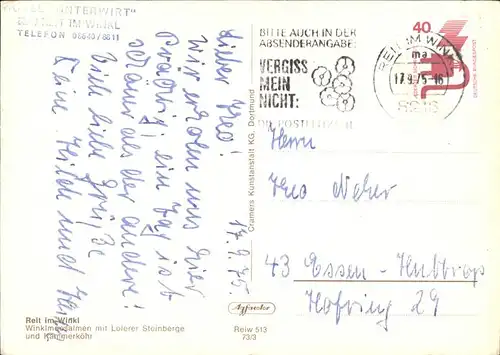 HOTEL "UNTERWIRT"
REIT IM WINKL
TELEFON 08640/8811
17.9.75
Lieber Theo!
Wir erholen uns hier
prächtig! ein Tag ist
schöner als der andere!
Viele liebe Grüße
Deine
und
BITTE AUCH IN DER
ABSENDERANGABE:
VERGISS
MEIN
NICHT:
DIE POSTLEITZAHL
REIT IM WINKL
ma
17.9.75-16
8216
40
DEUTSCHE BUNDESPOST
Herrn
Theo Weber
43 Essen-Huttrop
Hofring 29
Cramers Kunstanstalt KG, Dortmund
Reit im Winkl
Winklmoosalmen mit Loferer Steinberge
und Kammerköhr
Agfacolor
Reiw 513
73/3